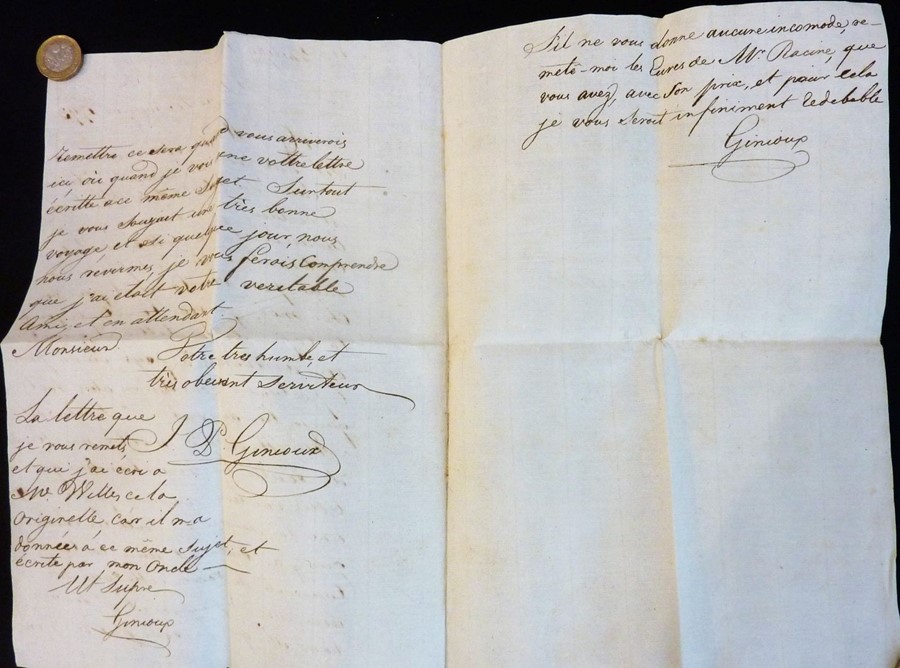 remettre ce sera quand vous arriverois
ici où quand je vous ene vottre lettre
écritte a ce même Sujet. Surtout
je vous Souzait un très bonne
voyage et si quelque jour nous
nous révermes, je vous ferois Comprendre
que j'ai etait votre veritable
Ami, et en attendant.
Monsieur Votre tres humbe, et
très obeisent Serviteur
J P. Ginioux
La lettre que
je vous remets
et que j'ai ecri a
Mr. Willes ce la
Originelle, car il m'a
données á ce même Sujet, et
écrite par mon Oncle
Ut Supre
Ginioux
S'il ne vous donne aucune incomode, re-
mete-moi les Eures de Mr. Racine, que
vous avez, avec Son prix, et pour cela
je vous Seroit infiniment Redebable
Ginioux